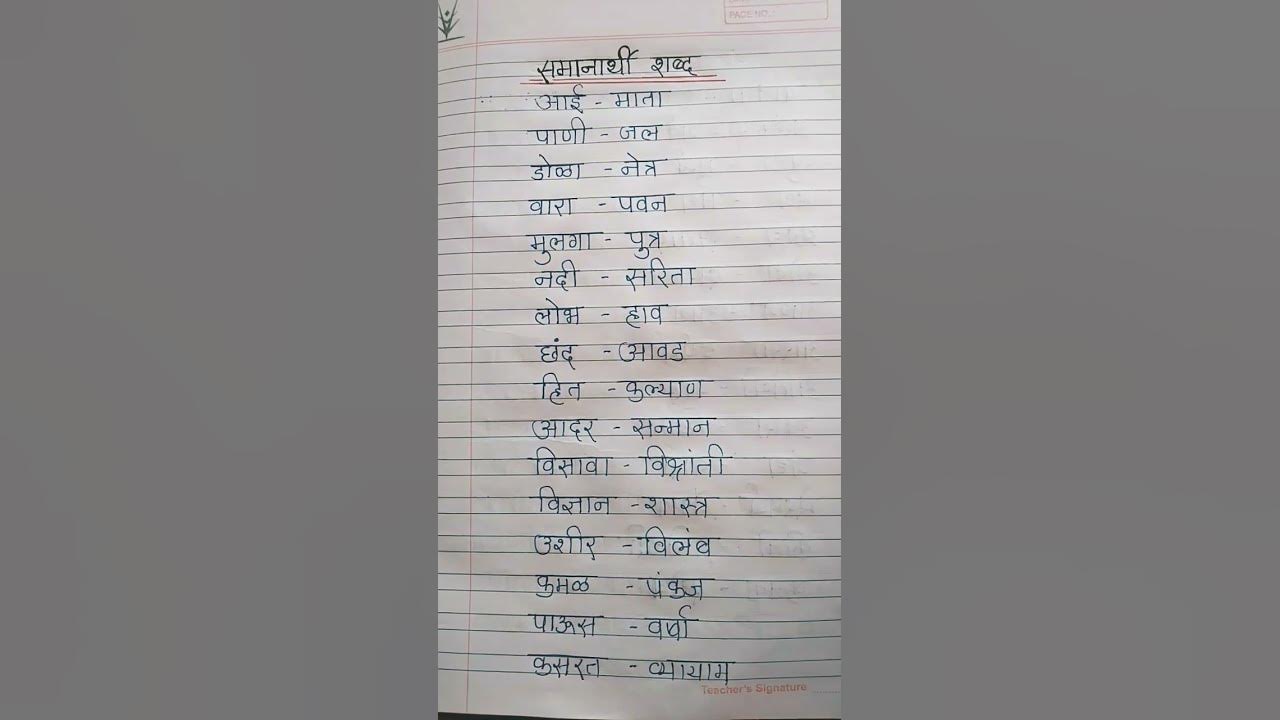 PAGE NO.:
समानार्थी शब्द
आई - माता
पाणी - जल
डोळा - नेत्र
वारा - पवन
मुलगा - पुत्र
नदी - सरिता
लोभ - हाव
छंद - आवड
हित - कल्याण
आदर - सन्मान
विसावा - विश्रांती
विज्ञान - शास्त्र
उशीर - विलंब
कमळ - पंकज
पाऊस - वर्षा
कसरत - व्यायाम
Teacher's Signature